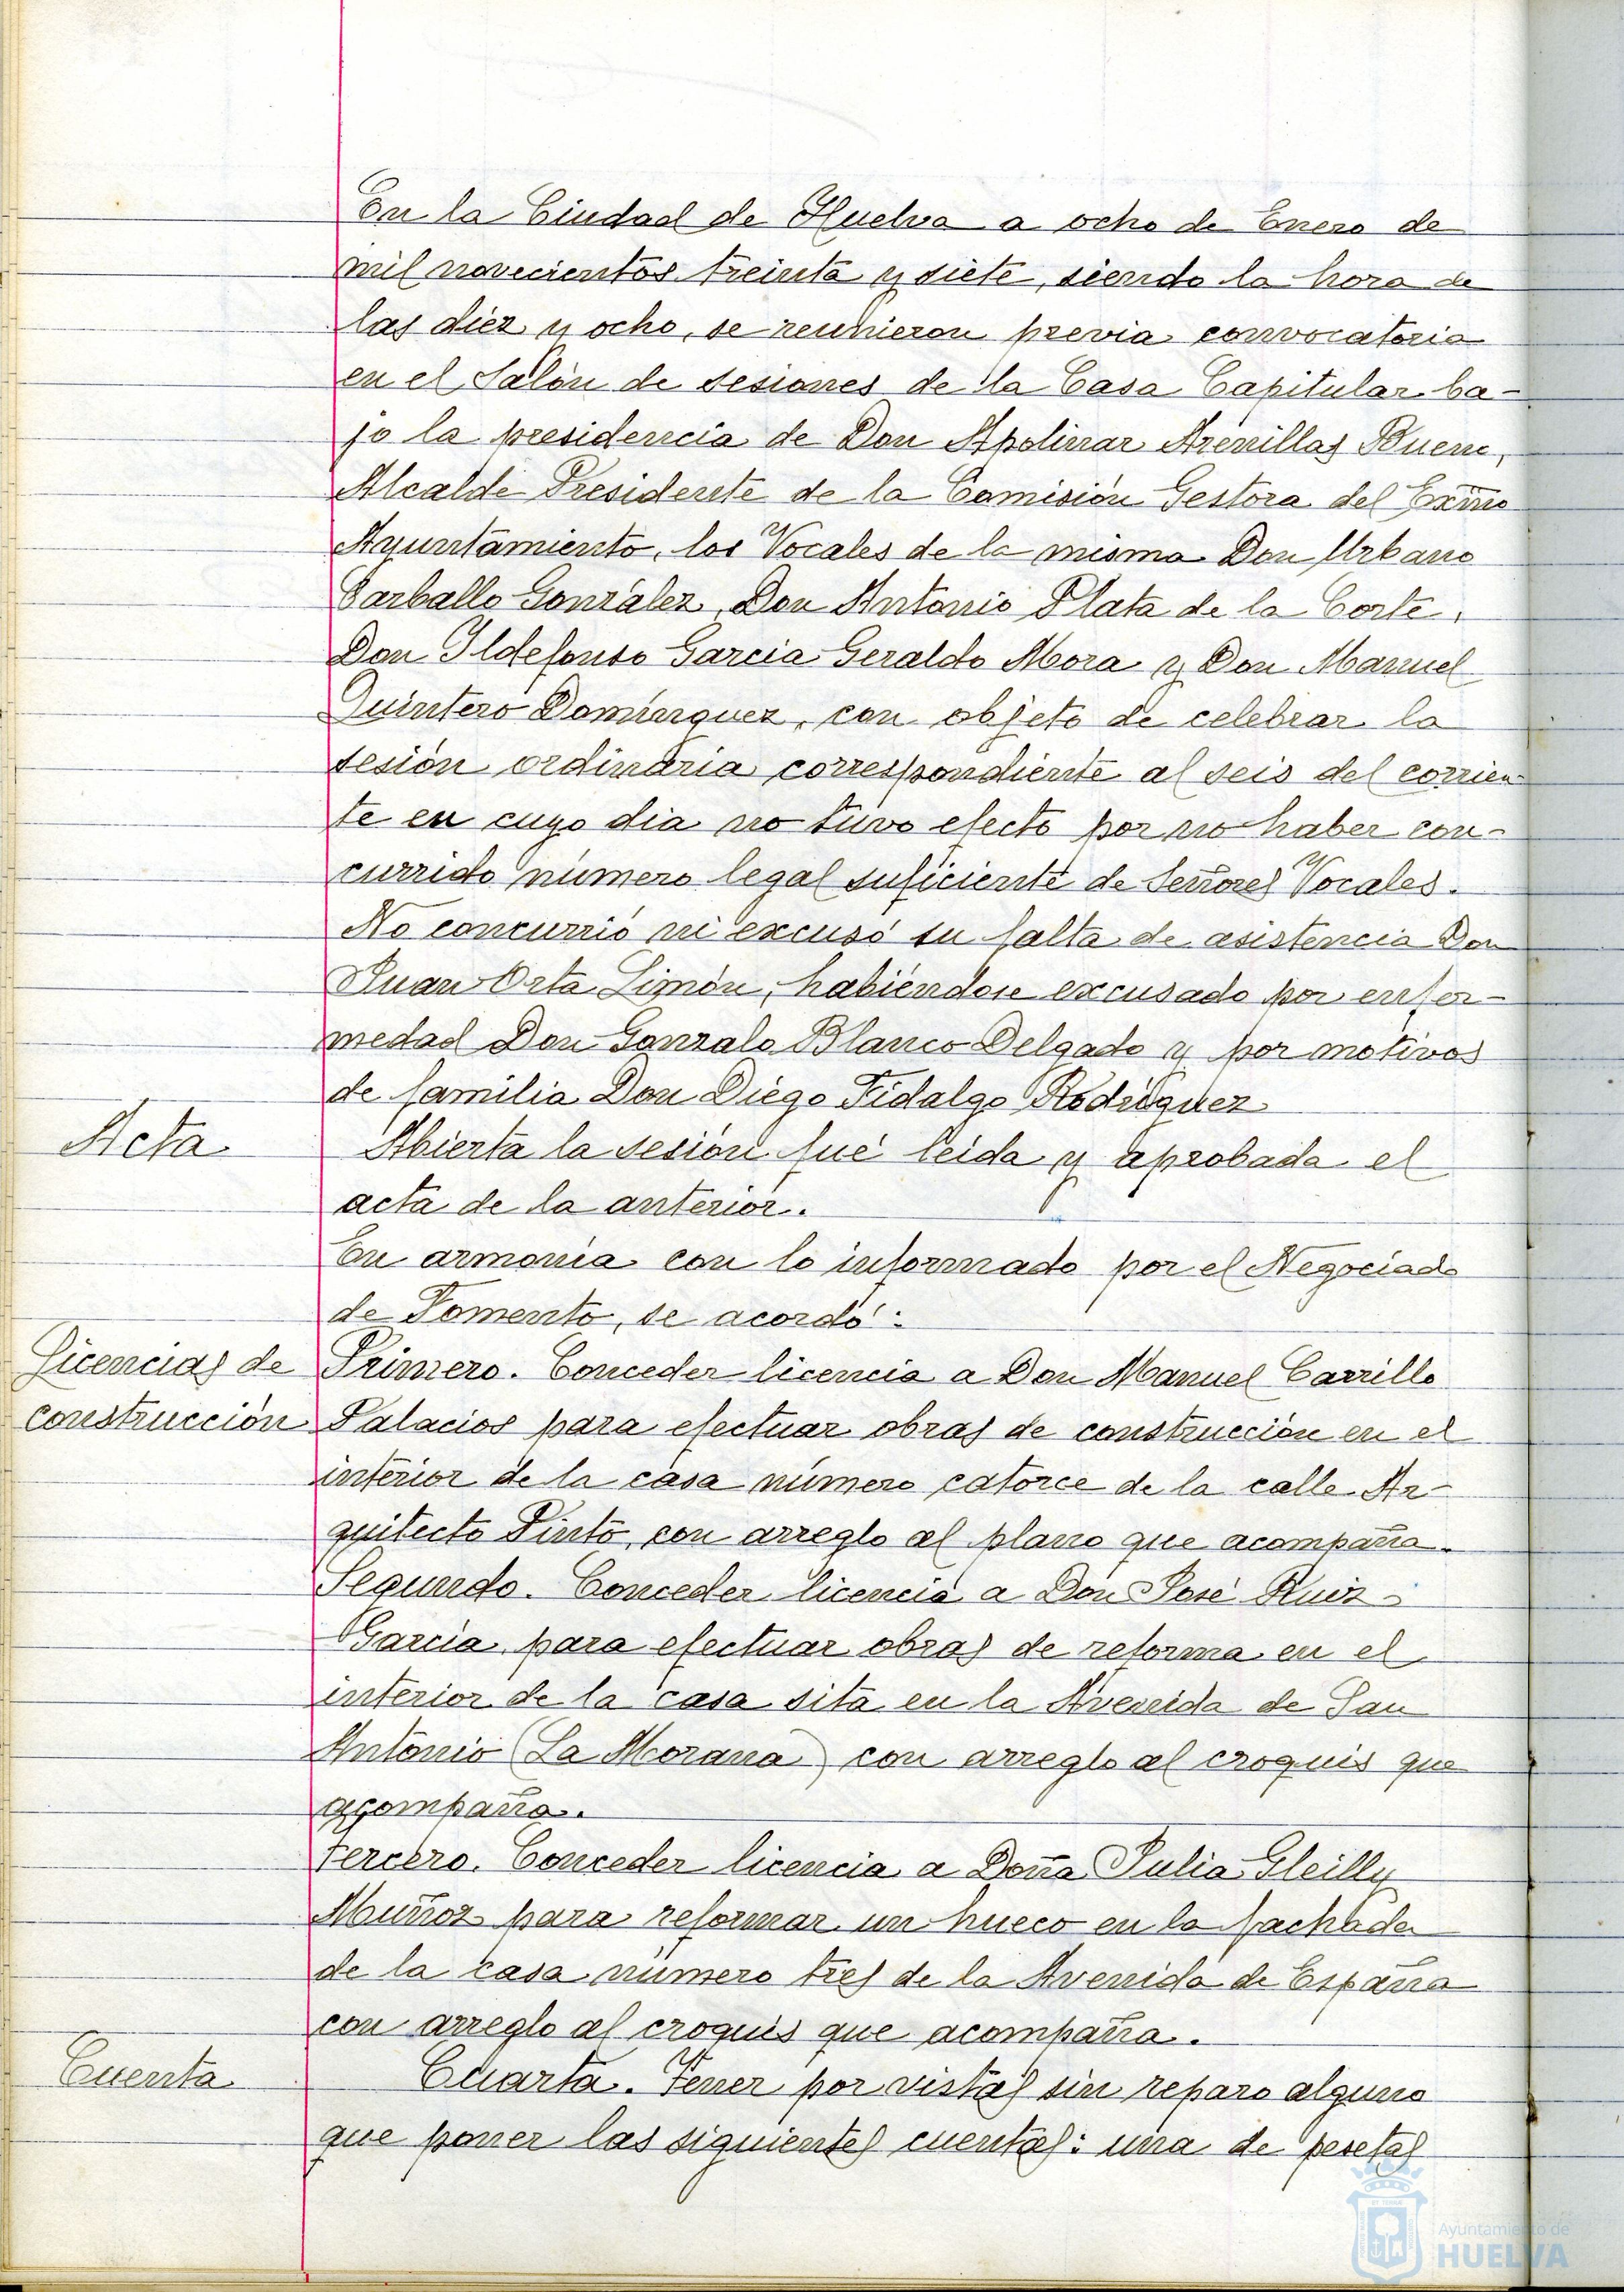 En la Ciudad de Huelva a ocho de Enero de
mil novecientos treinta y siete, siendo la hora de
las diez y ocho, se reunieron previa convocatoria
en el Salón de sesiones de la Casa Capitular ba-
jo la presidencia de Don Apolinar Arenillas Bueno,
Alcalde Presidente de la Comisión Gestora del Excmo
Ayuntamiento, los Vocales de la misma Don Urbano
Carballo González, Don Antonio Plata de la Corte,
Don Ildefonso Garcia Geraldo Mora y Don Manuel
Quintero Domínguez, con objeto de celebrar la
sesión ordinaria correspondiente al seis del corrien-
te en cuyo dia no tuvo efecto por no haber con-
currido número legal suficiente de Señores Vocales.
No concurrió ni excusó su falta de asistencia Don
Juan Orta Limón, habiéndose excusado por enfer-
medad Don Gonzalo Blanco Delgado y por motivos
de familia Don Diego Fidalgo Rodriguez
Acta
Abierta la sesión fué leida y aprobada el
acta de la anterior.
En armonia con lo informado por el Negociado
de Fomento, se acordó:
Licencias de
construcción
Primero. Conceder licencia a Don Manuel Carrillo
Palacios para efectuar obras de construcción en el
interior de la casa número catorce de la calle Ar-
quitecto Pinto, con arreglo al plano que acompaña.
Segundo. Conceder licencia a Don José Ruiz
Garcia para efectuar obras de reforma en el
interior de la casa sita en la Avenida de San
Antonio (La Morana) con arreglo al croquis que
acompaña.
Tercero. Conceder licencia a Doña Julia Gleilly
Muñoz para reformar un hueco en la fachada
de la casa número tres de la Avenida de España
con arreglo al croquis que acompaña.
Cuenta
Cuarta. Tener por vistas sin reparo alguno
que poner las siguientes cuentas: una de pesetas
Ayuntamiento de
HUELVA